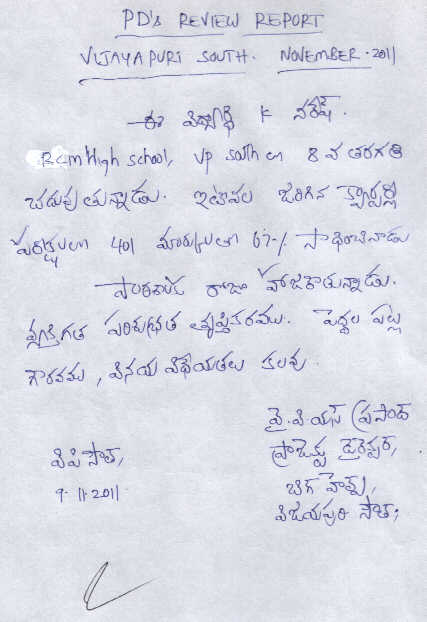 PD's REVIEW REPORT
VIJAYAPURI SOUTH. NOVEMBER-2011
ఈ విద్యార్థి K నరేష్.
RCM High school, VP south లో 8 వ తరగతి
చదువుతున్నాడు. ఇటీవల జరిగిన క్వార్టర్లీ
పరీక్షలలో 401 మార్కులతో 67% సాధించినాడు
పాఠశాలకు రోజూ హాజరౌతున్నాడు.
వ్యక్తిగత పరిశుభ్రత తృప్తికరము. పెద్దల పట్ల
గౌరవము, వినయ విధేయతలు కలవు.
వై.పి.యస్ ప్రసాద్
ప్రాజెక్టు డైరెక్టర్,
వి.పి సౌత్,
బిగ్ హెల్ప్,
9-11-2011
విజయపురి సౌత్;